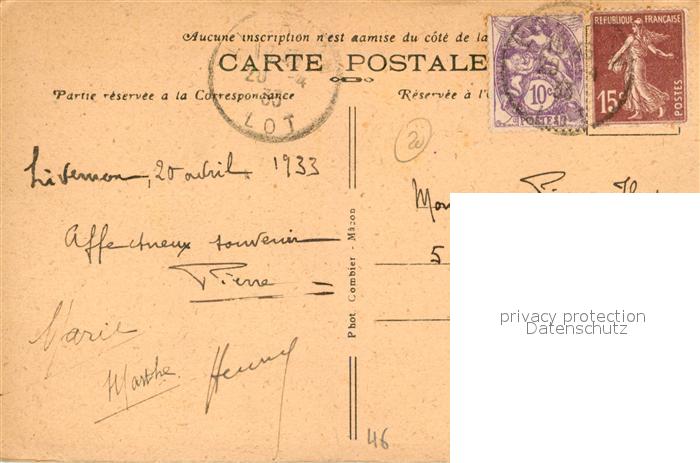 Aucune inscription n'est aamise du côté de la
CARTE POSTALE
Partie réservée a la Correspondance
Réservée à l'
20 -4
33
LOT
10c
POSTES
REPUBLIQUE FRANÇAISE
15c
POSTES
20
Livernon, 20 avril 1933
Affectueux souvenir
Pierre
Marie
Marthe
Henry
Phot. Combier - Mâcon
Pierre
5
46
privacy protection
Datenschutz